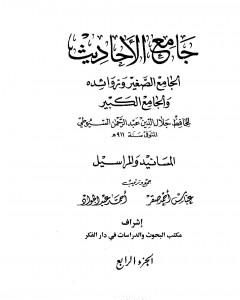 جامع الأحاديث
الجامع الصغير وزوائده
والجامع الكبير
للحافظ جلال الدين عبد الرحمن السيوطي
المتوفى سنة ٩١١ هـ
المسانيد والمراسيل
جمع وترتيب
عباس أحمد صقر أحمد عبد الجواد
إشراف
مكتب البحوث والدراسات في دار الفكر
الجزء الرابع